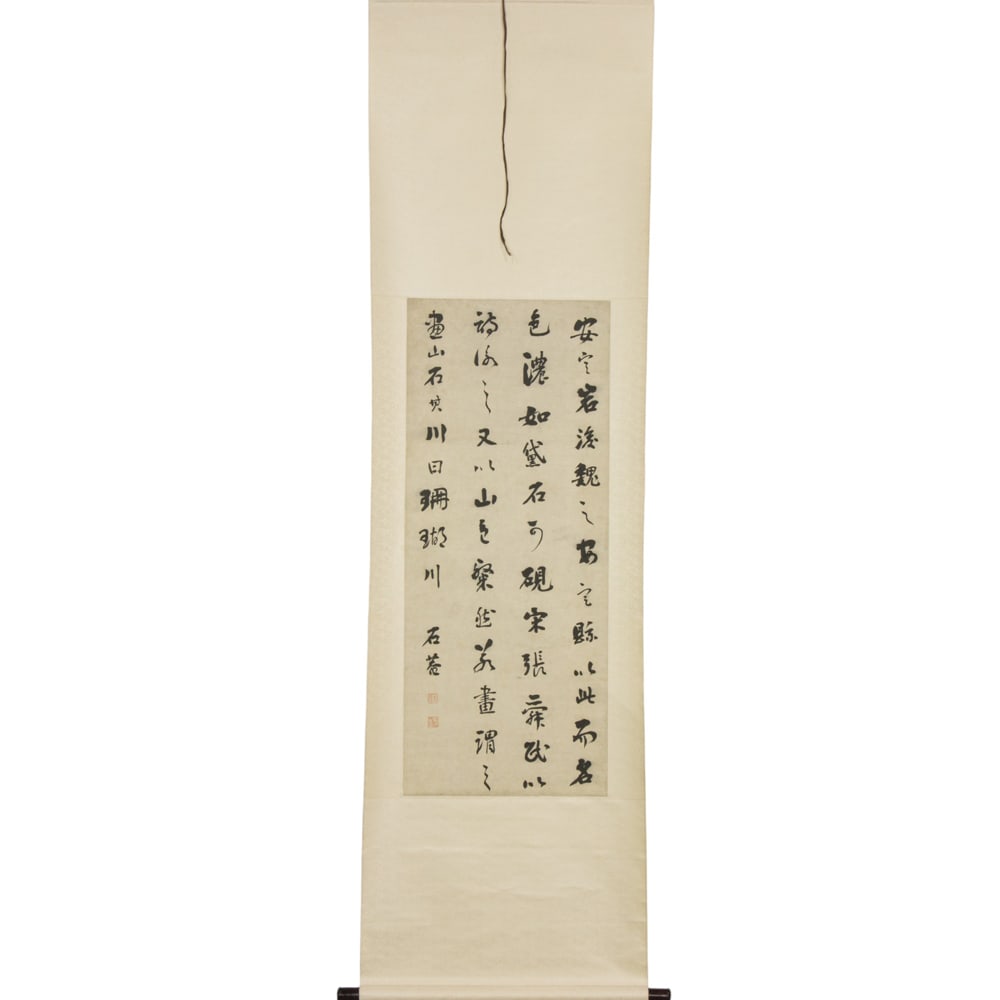 安定岩後魏之安定縣以此而名
色濃如黛石可硯宋張舜民以
詩詠之又以山色粲然若畫謂之
畫山石其川曰珊瑚川
石菴